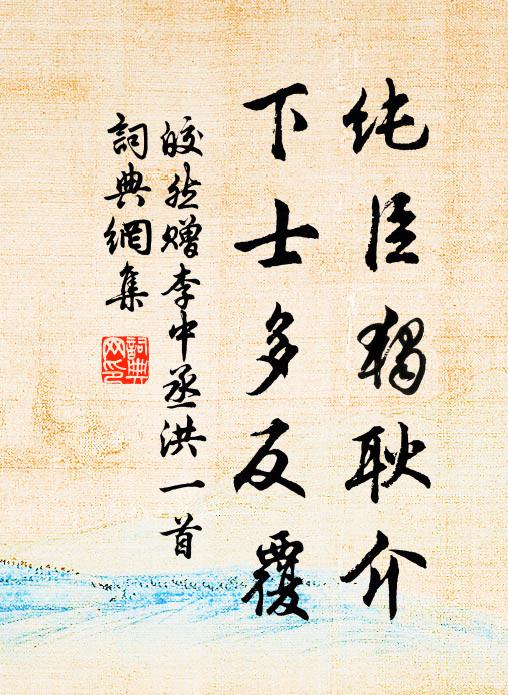 纯臣独耿介
下士多反覆
皎然赠李中丞洪一首
詞典網集
詞典網印